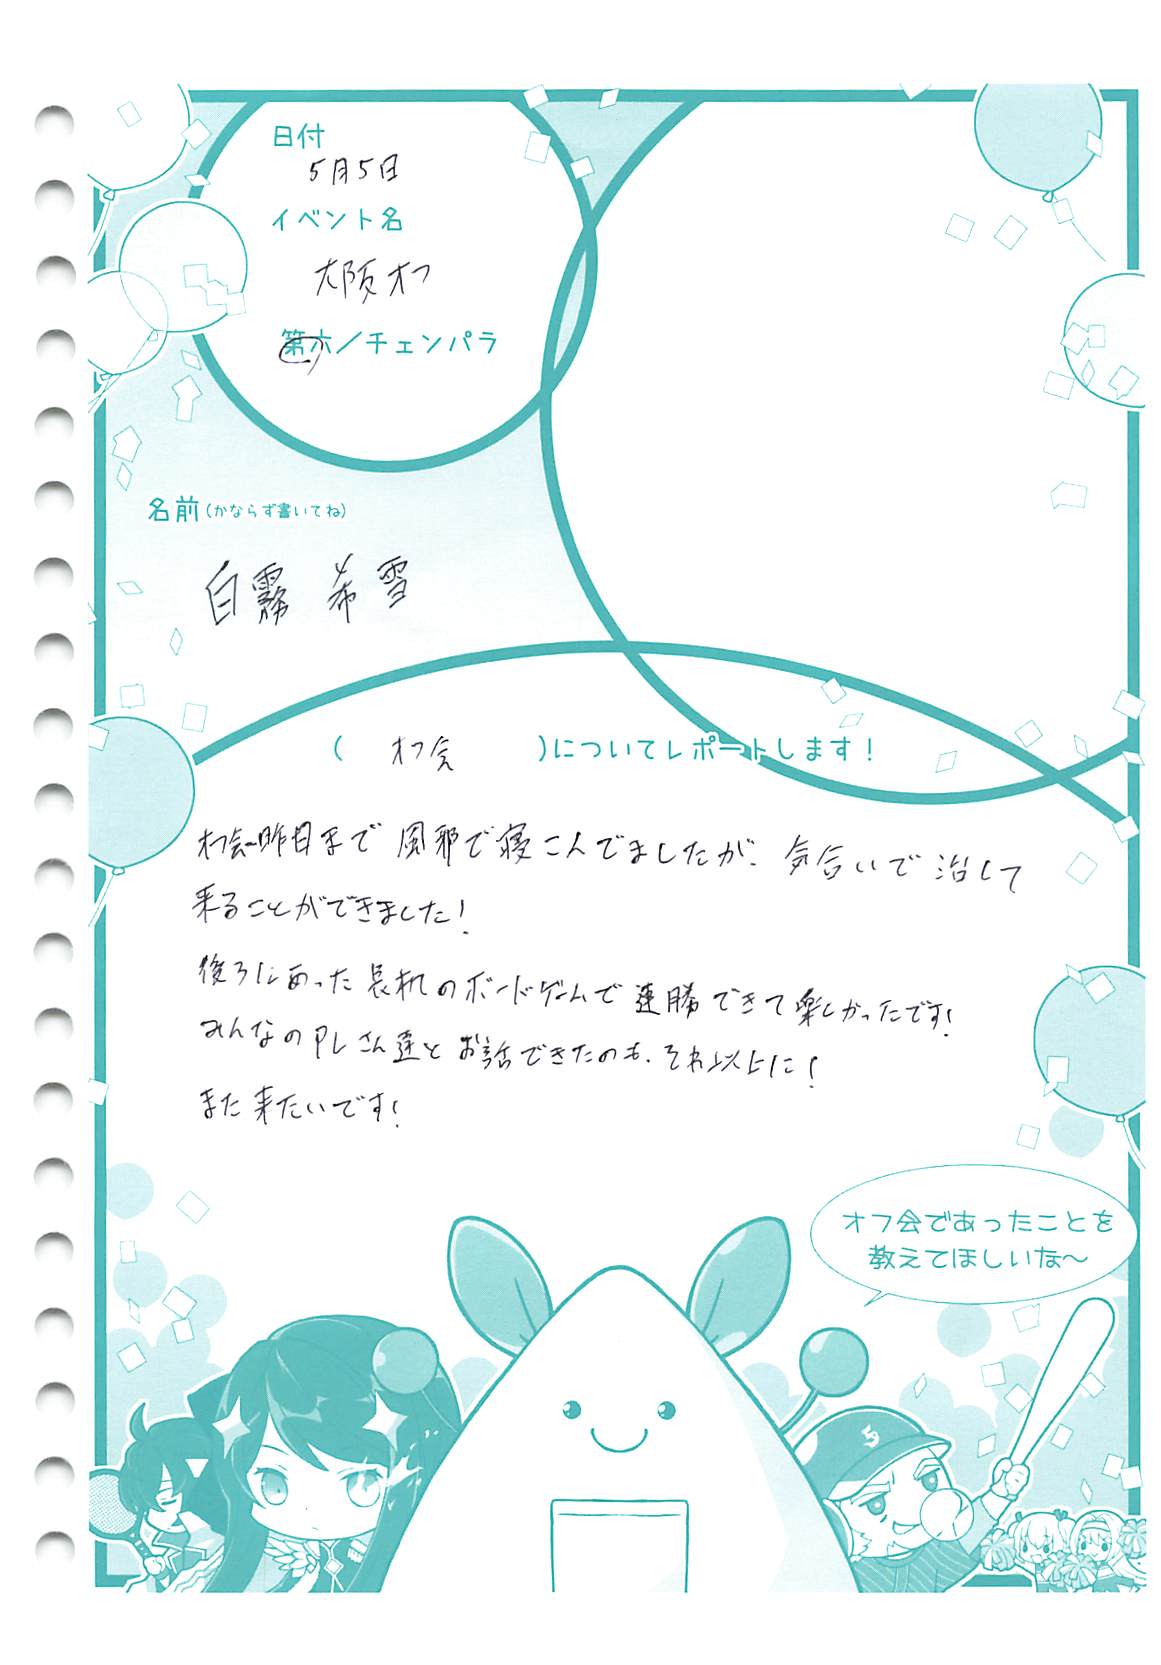 日付
5月5日
イベント名
大阪オフ
第六／チェンパラ
名前(かならず書いてね)
白霧 希雪
( オフ会 )についてレポートします！
オフ会昨日まで風邪で寝こんでましたが、気合いで治して
来ることができました！
後ろにあった長机のボードゲームで連勝できて楽しかったです！
みんなのPLさん達とお話できたのも、それ以上に！
また来たいです！
オフ会であったことを
教えてほしいな～